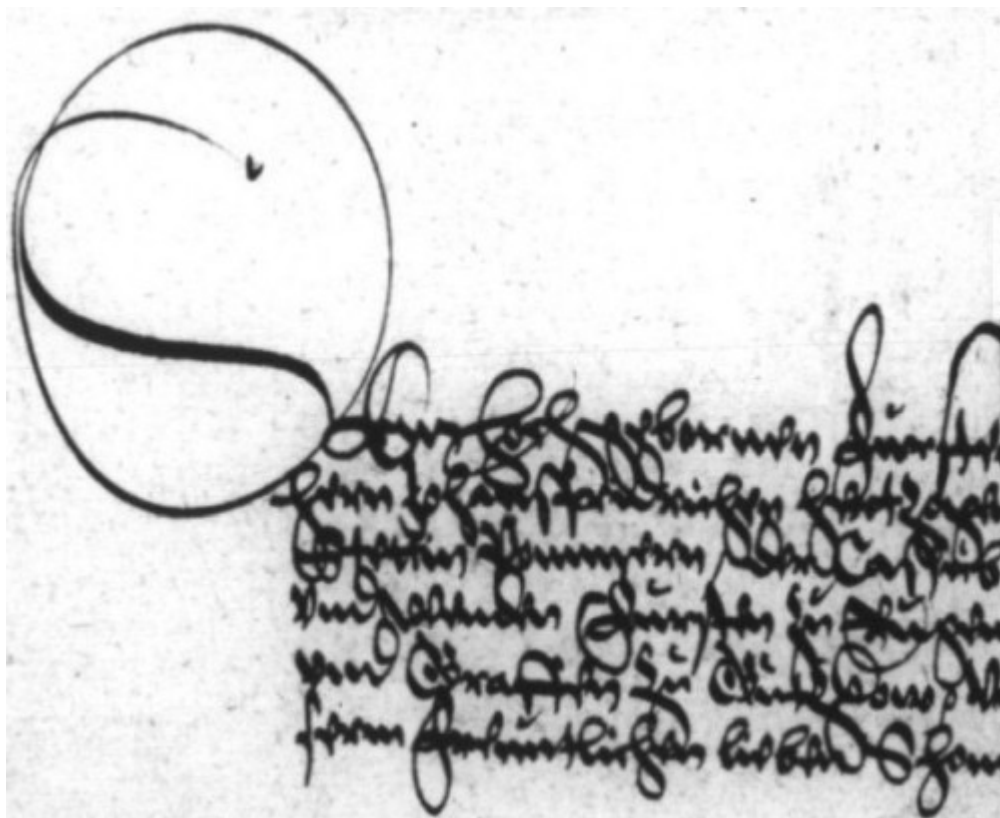 Dem Hochgebornen Fürsten
hern Johans Friderichen hertzogen
Stettin Pommern der Cassuben
vnd Wenden Fürsten zu Rügen
vnd Graffen zu Gützkow V
serm freuntlichen lieben Ohem